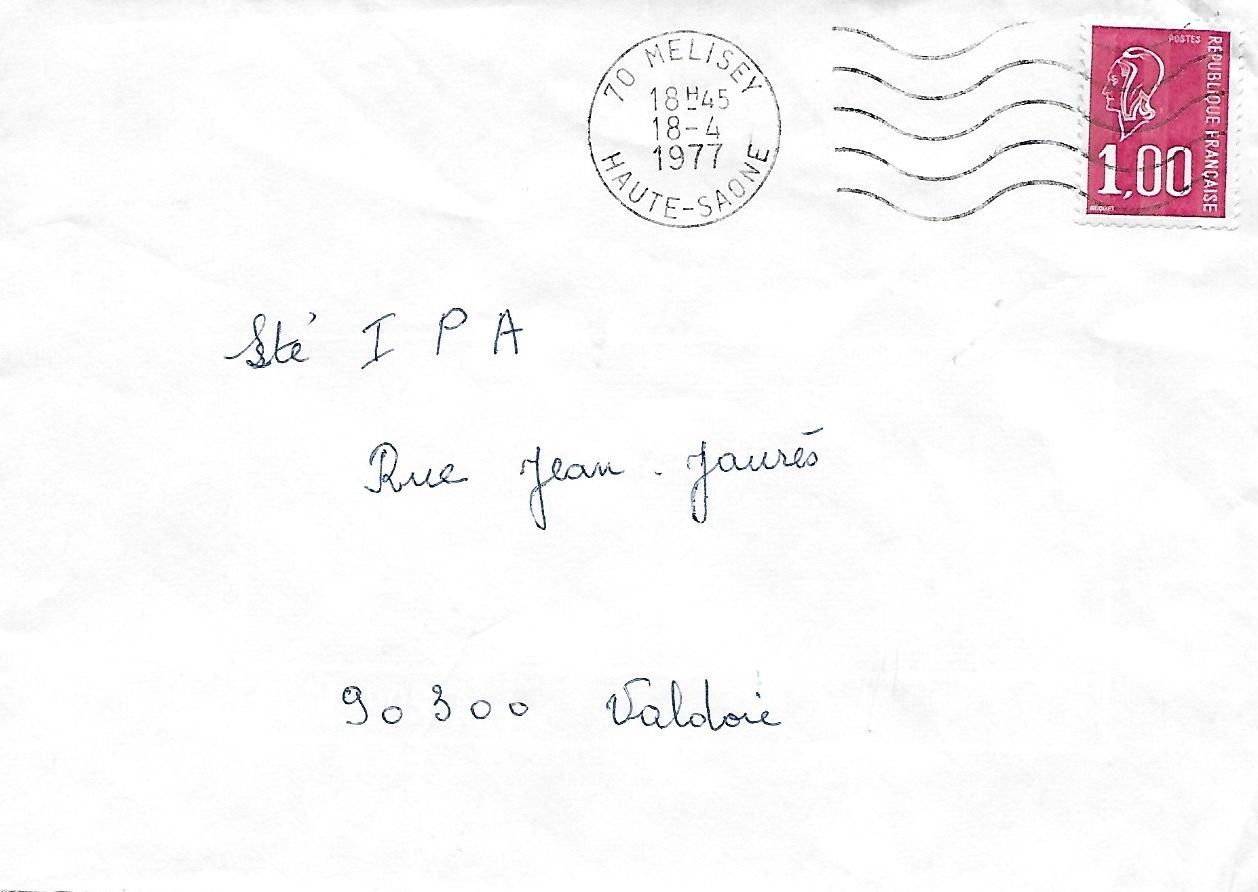 70 MELISEY
18H45
18-4
1977
HAUTE-SAONE
POSTES
REPUBLIQUE FRANÇAISE
1,00
BEQUET
Sté I P A
Rue Jean. Jaurés
90300 Valdoie